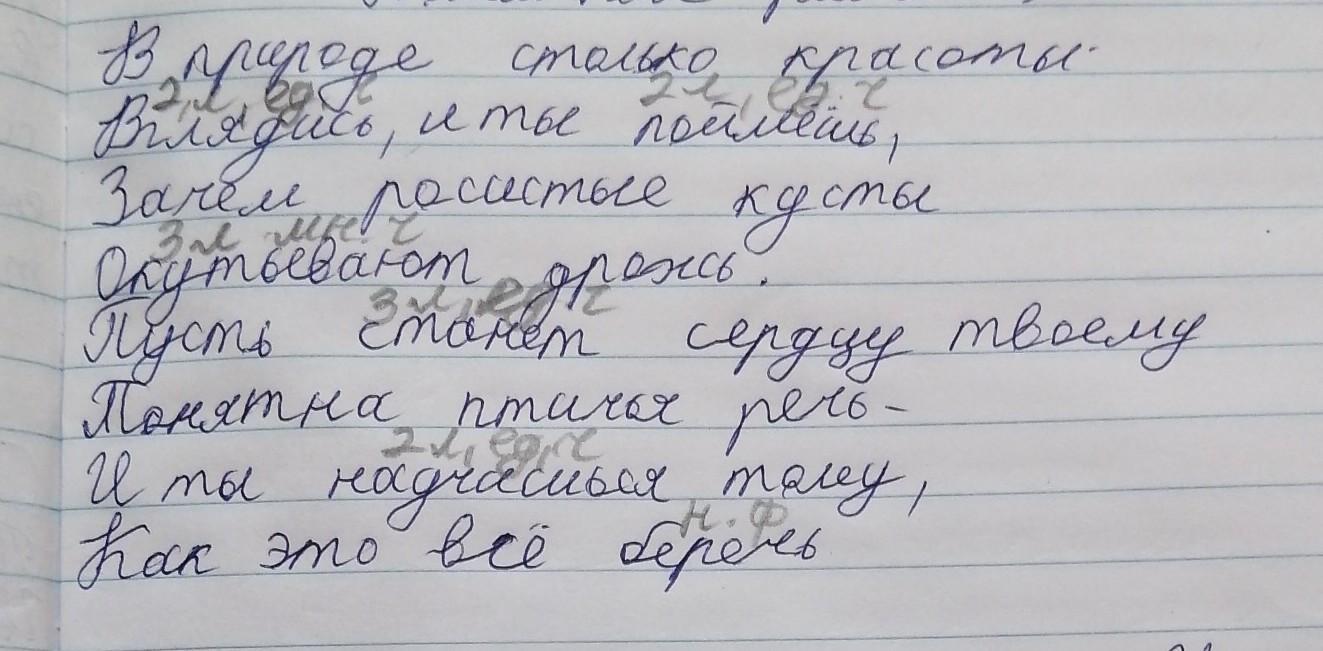 В природе столько красоты
2 л, ед. ч 2 л, ед. ч
Вглядись, и ты поймёшь,
Зачем росистые кусты
3 л мн. ч
Окутывают дрожь.
3 л, ед ч
Пусть станет сердцу твоему
Понятна птичья речь-
2 л, ед, ч
И ты
тому,
н. ф
Как это всё беречь